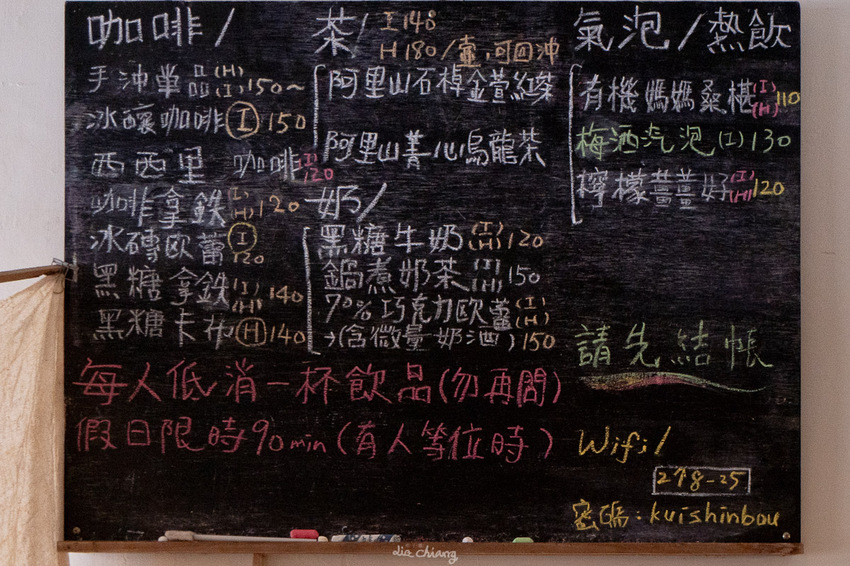 咖啡/
手沖單品(H)(I)150~
冰釀咖啡(I)150
西西里 咖啡(I)120
咖啡拿鐵(I)(H)120
冰磚歐蕾(I)120
黑糖拿鐵(I)(H)140
黑糖卡布(H)140
茶/ I 140
H 180/壺,可回沖
阿里山石棹金萱紅茶
阿里山菁心烏龍茶
奶/
黑糖牛奶(I)(H)120
鍋煮奶茶(I)(H)150
70%巧克力歐蕾(I)(H)
→(含微量奶酒)150
氣泡/熱飲
有機媽媽桑椹(I)(H)110
梅酒汽泡(I)130
檸檬薑薑好(I)(H)120
請先結帳
每人低消一杯飲品(勿再問)
假日限時90min(有人等位時)
Wifi/
278-25
密碼:kuishinbou
lia chiang